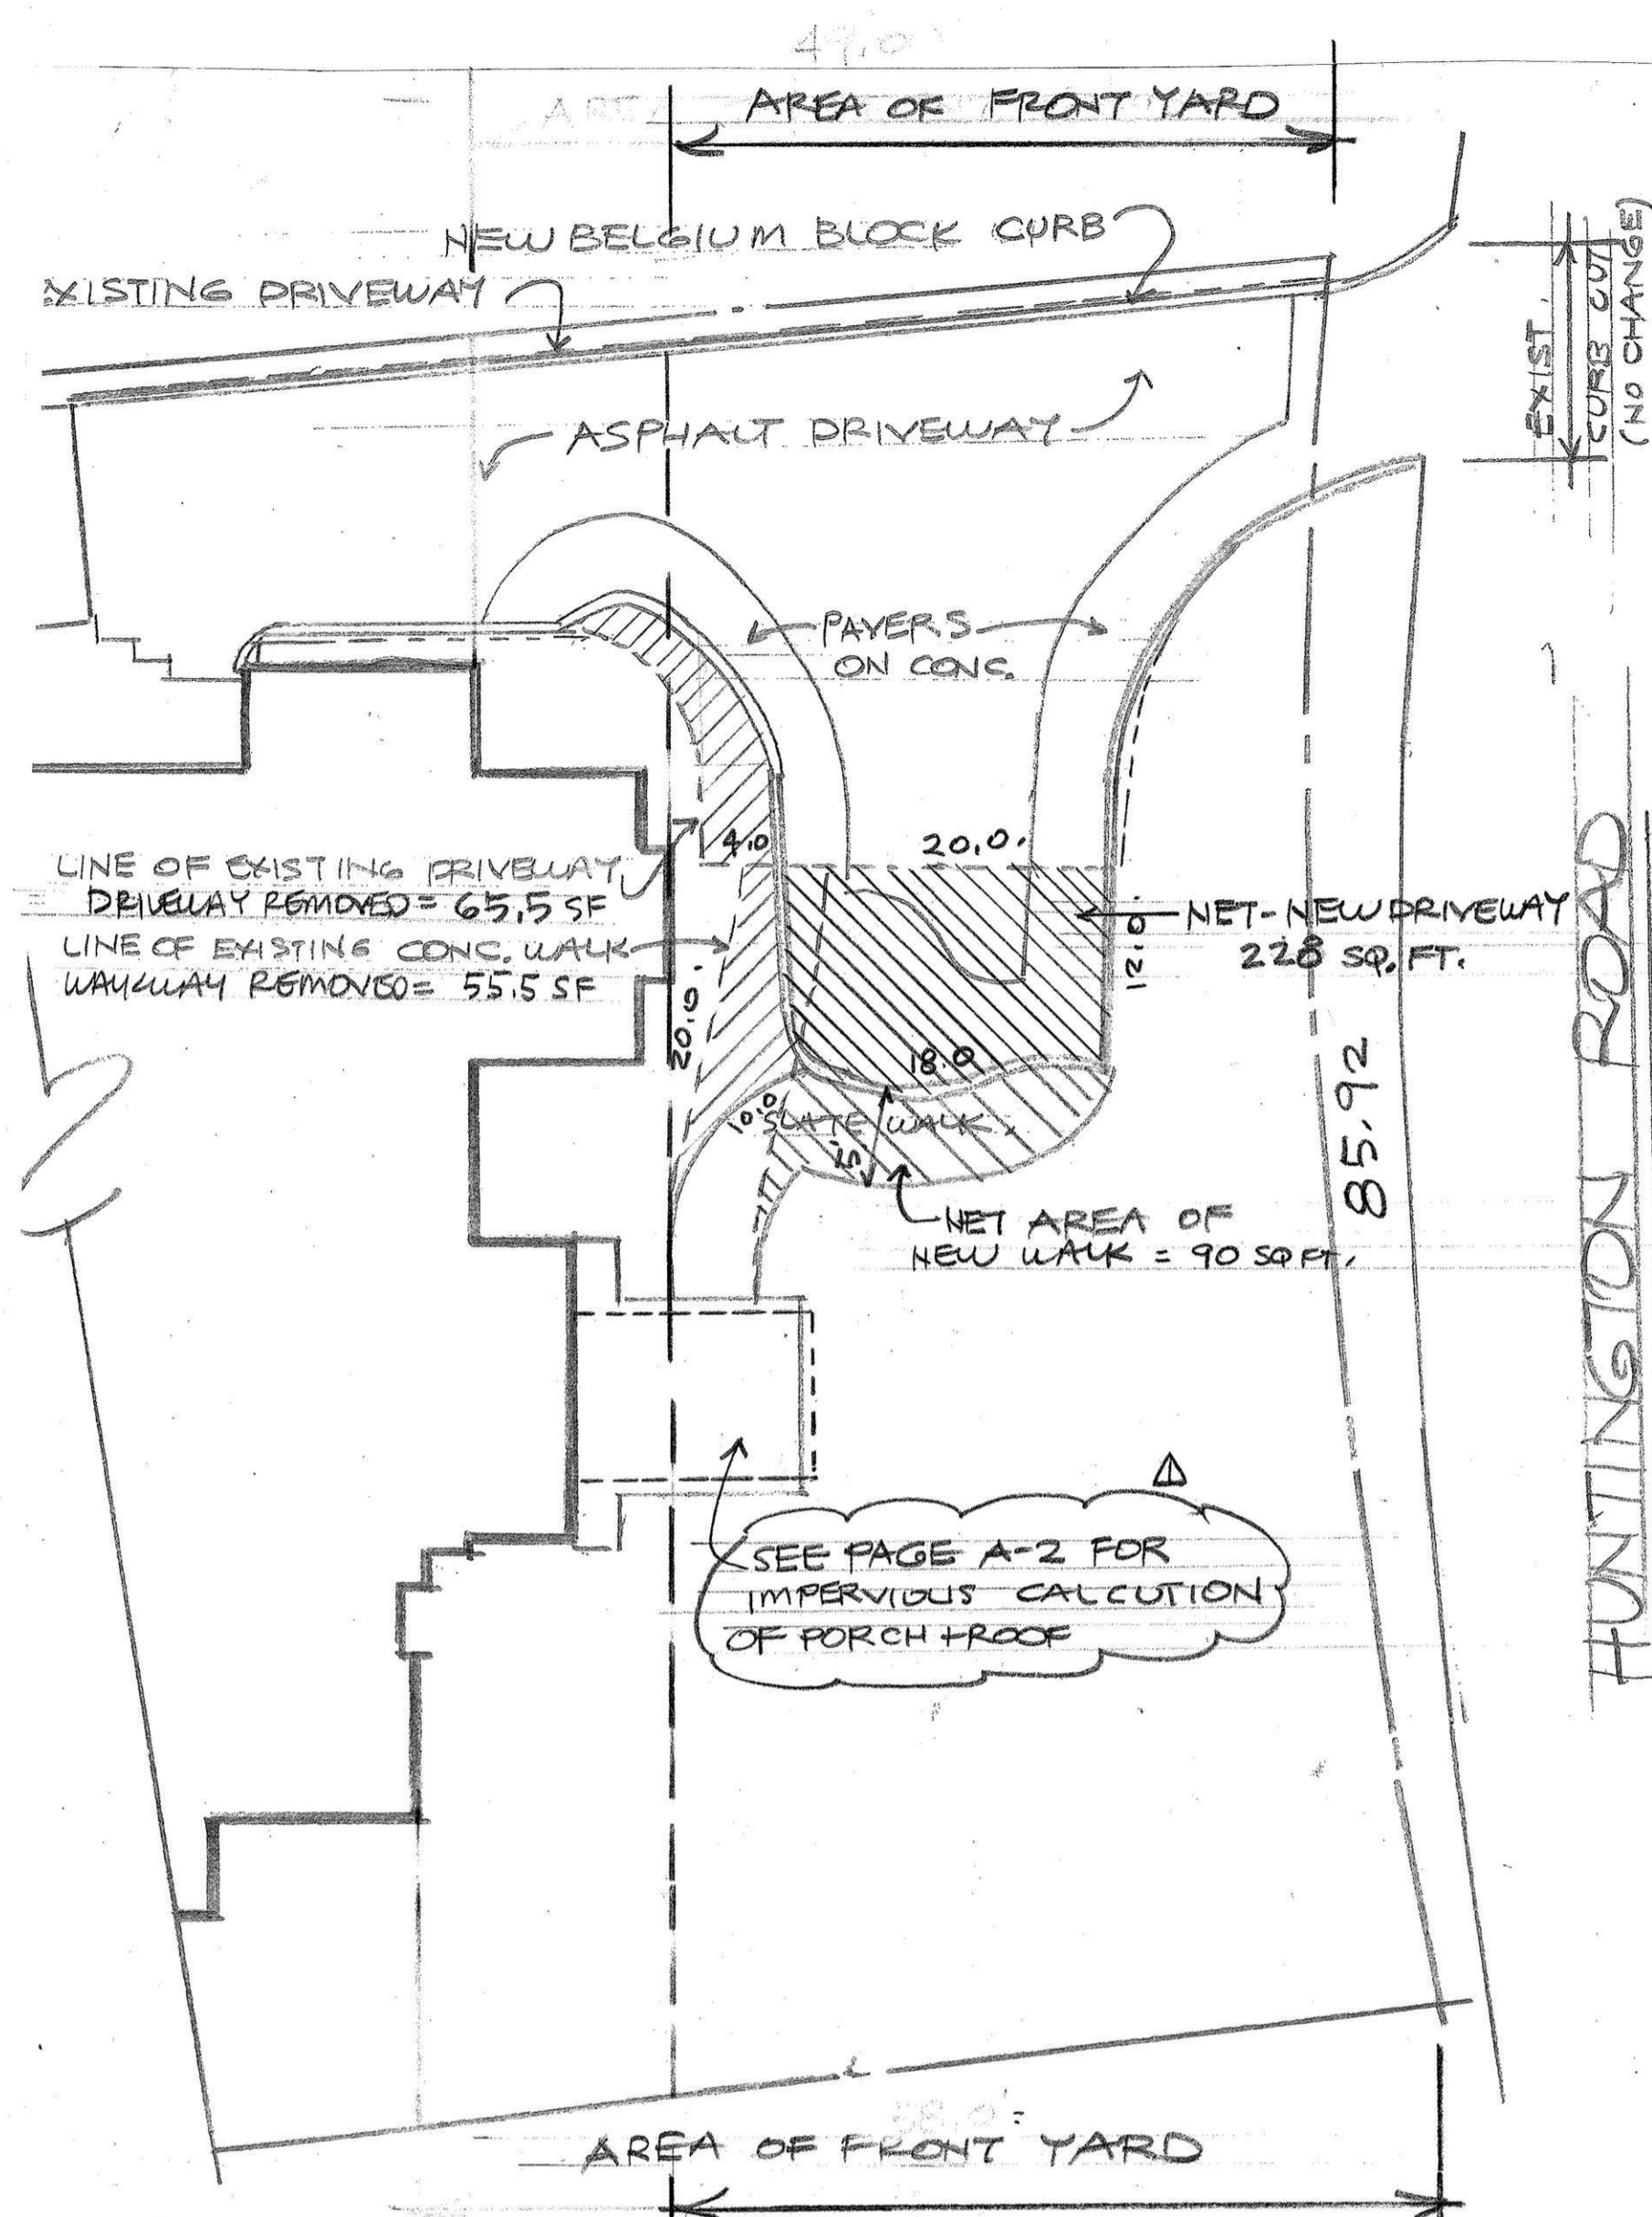 49.0
AREA OF FRONT YARD
NEW BELGIUM BLOCK CURB
XISTING DRIVEWAY
ASPHALT DRIVEWAY
EXIST.
CURB CUT
(NO CHANGE)
PAVERS
ON CONC.
4.0
20.0.
LINE OF EXISTING DRIVEWAY
DRIVEWAY REMOVED = 65.5 SF
LINE OF EXISTING CONC. WALK
WALKWAY REMOVED = 55.5 SF
NET-NEW DRIVEWAY
228 SQ. FT.
12.0.
20.0.
18.0
10.0
SLATE WALK.
5.
85.92
HUNTINGTON ROAD
NET AREA OF
NEW WALK = 90 SQ FT.
1
SEE PAGE A-2 FOR
IMPERVIOUS CALCUTION
OF PORCH + ROOF
AREA OF FRONT YARD